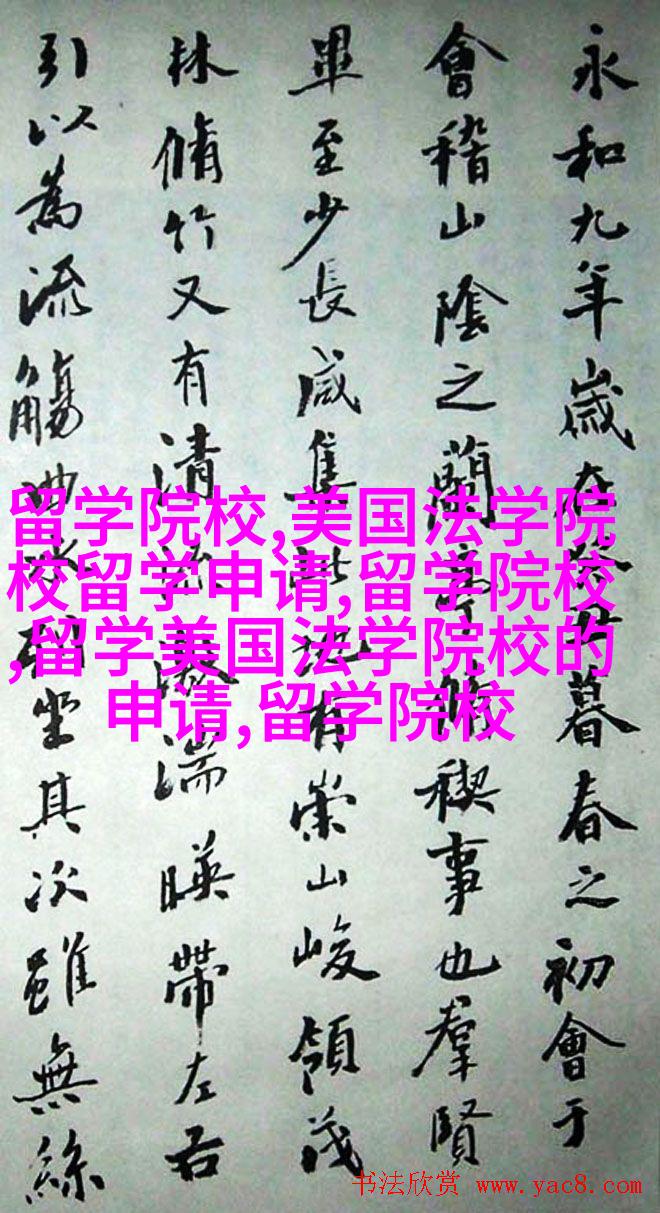 永和九年歲在癸丑暮春之初會于
會稽山陰之蘭亭脩禊事也羣賢
畢至少長咸集此地有崇山峻領茂
林脩竹又有清流激湍暎帶左右
引以為流觴曲水列坐其次雖無絲
留学院校,美国法学院
校留学申请,留学院校
,留学美国法学院校的
申请,留学院校
书法欣赏 www.yac8.com